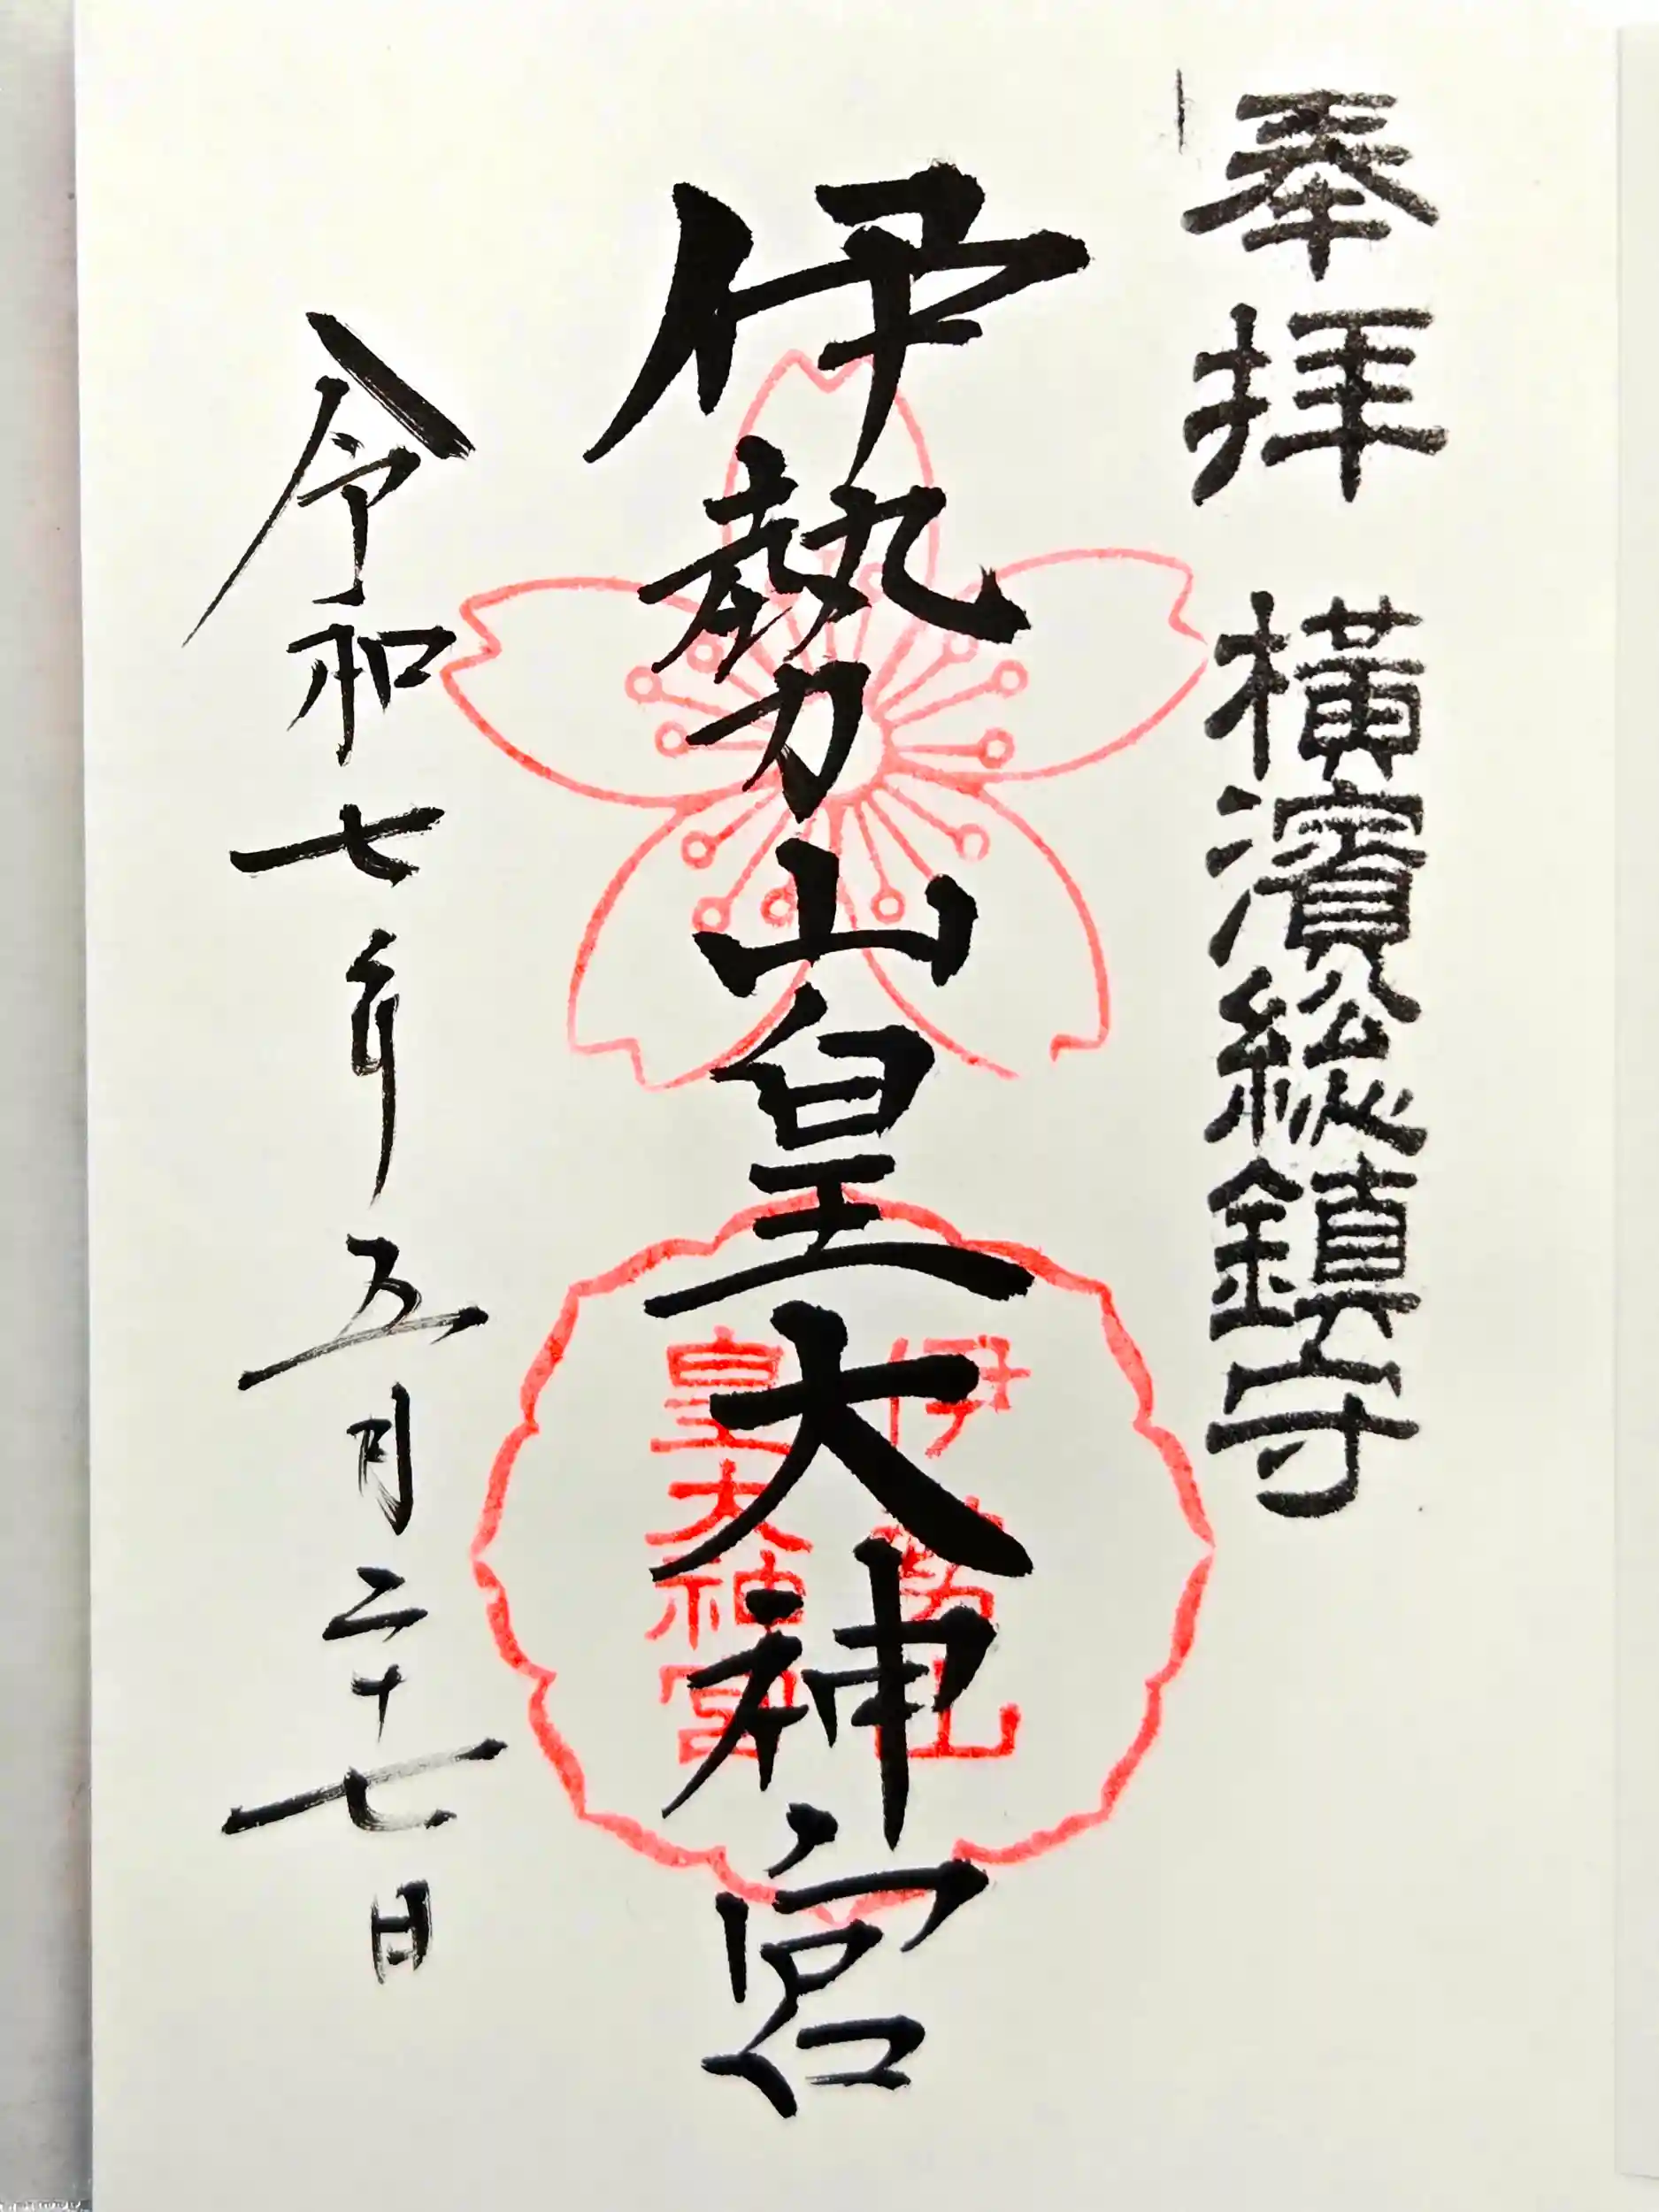 奉拝 横濱総鎮守
伊勢山皇大神宮
伊勢山
皇大神宮
令和七年五月二十七日